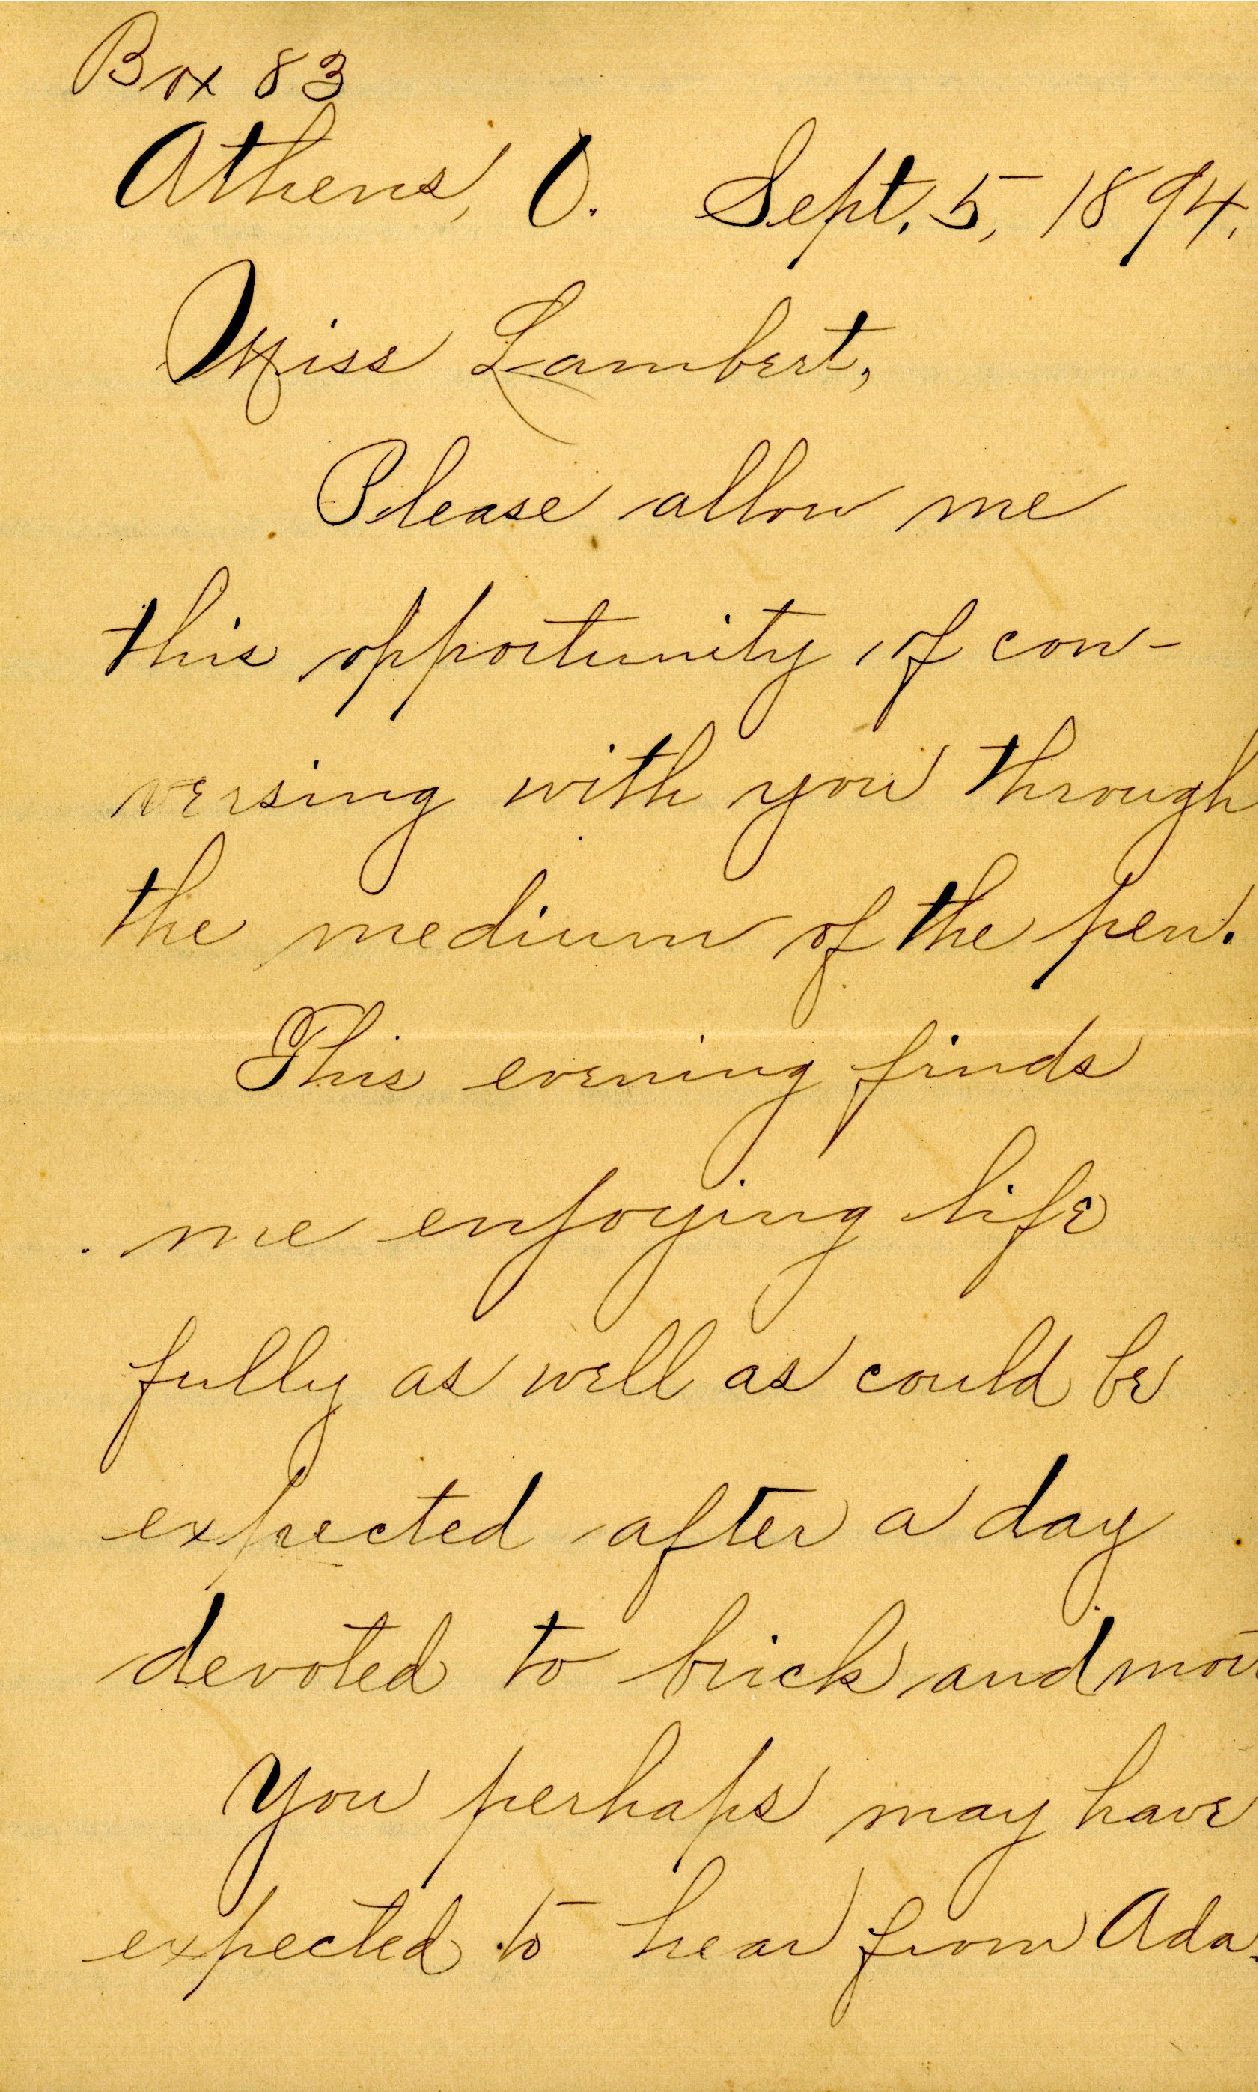 Box 83
Athens, O. Sept. 5, 1894.
Miss Lambert,
Please allow me
this opportunity of con-
versing with you through
the medium of the pen.
This evening finds
me enjoying life
fully as well as could be
expected after a day
devoted to brick and mort
You perhaps may have
expected to hear from Ada.